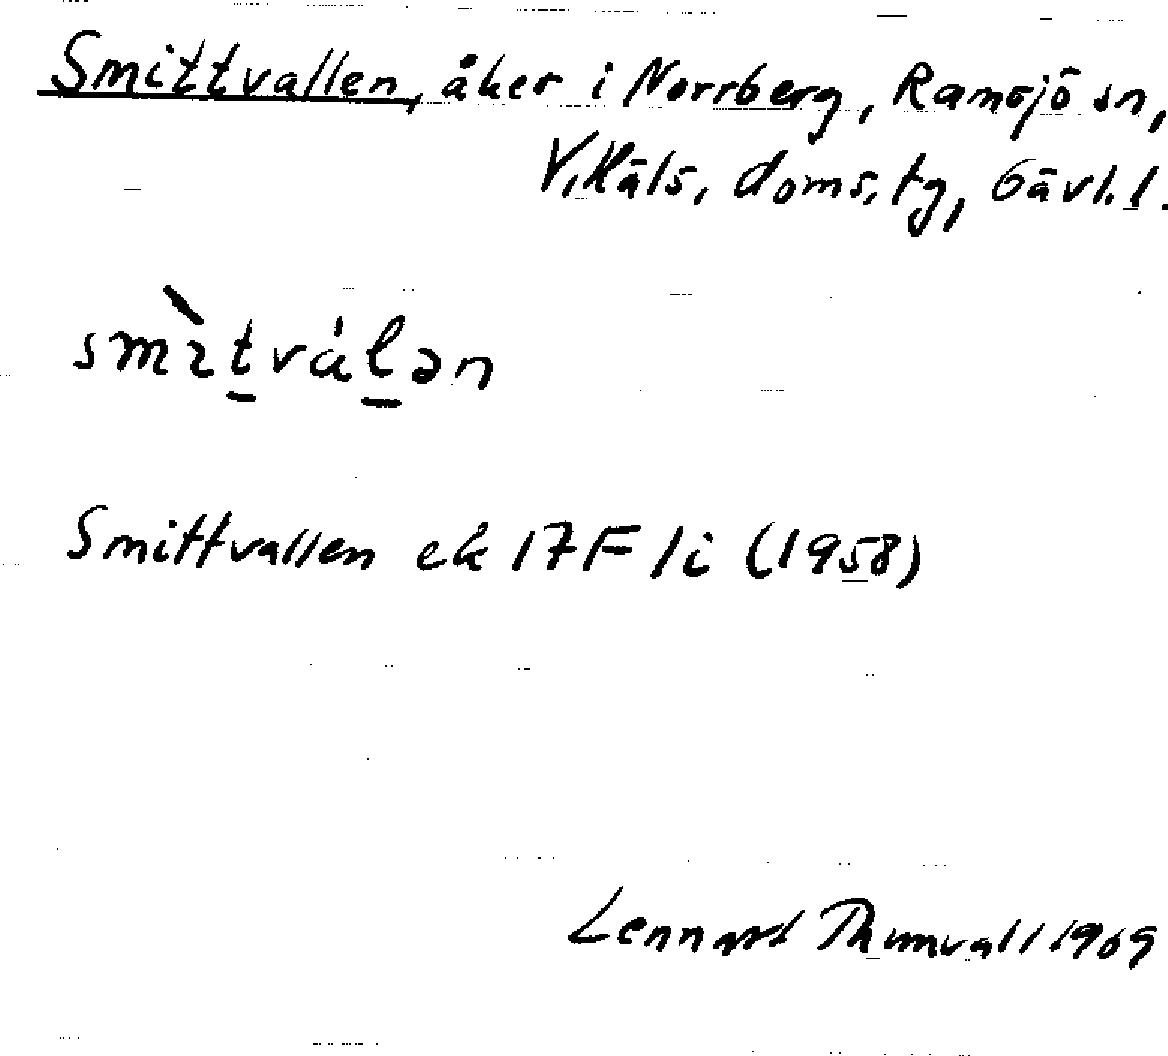 Smittvallen, åker i Norrberg, Ramsjö sn,
V. Häls. doms. tg, Gävl. l.
smìtválən
Smittvallen ek 17F 1i (1958)
Lennart Thunvall 1969